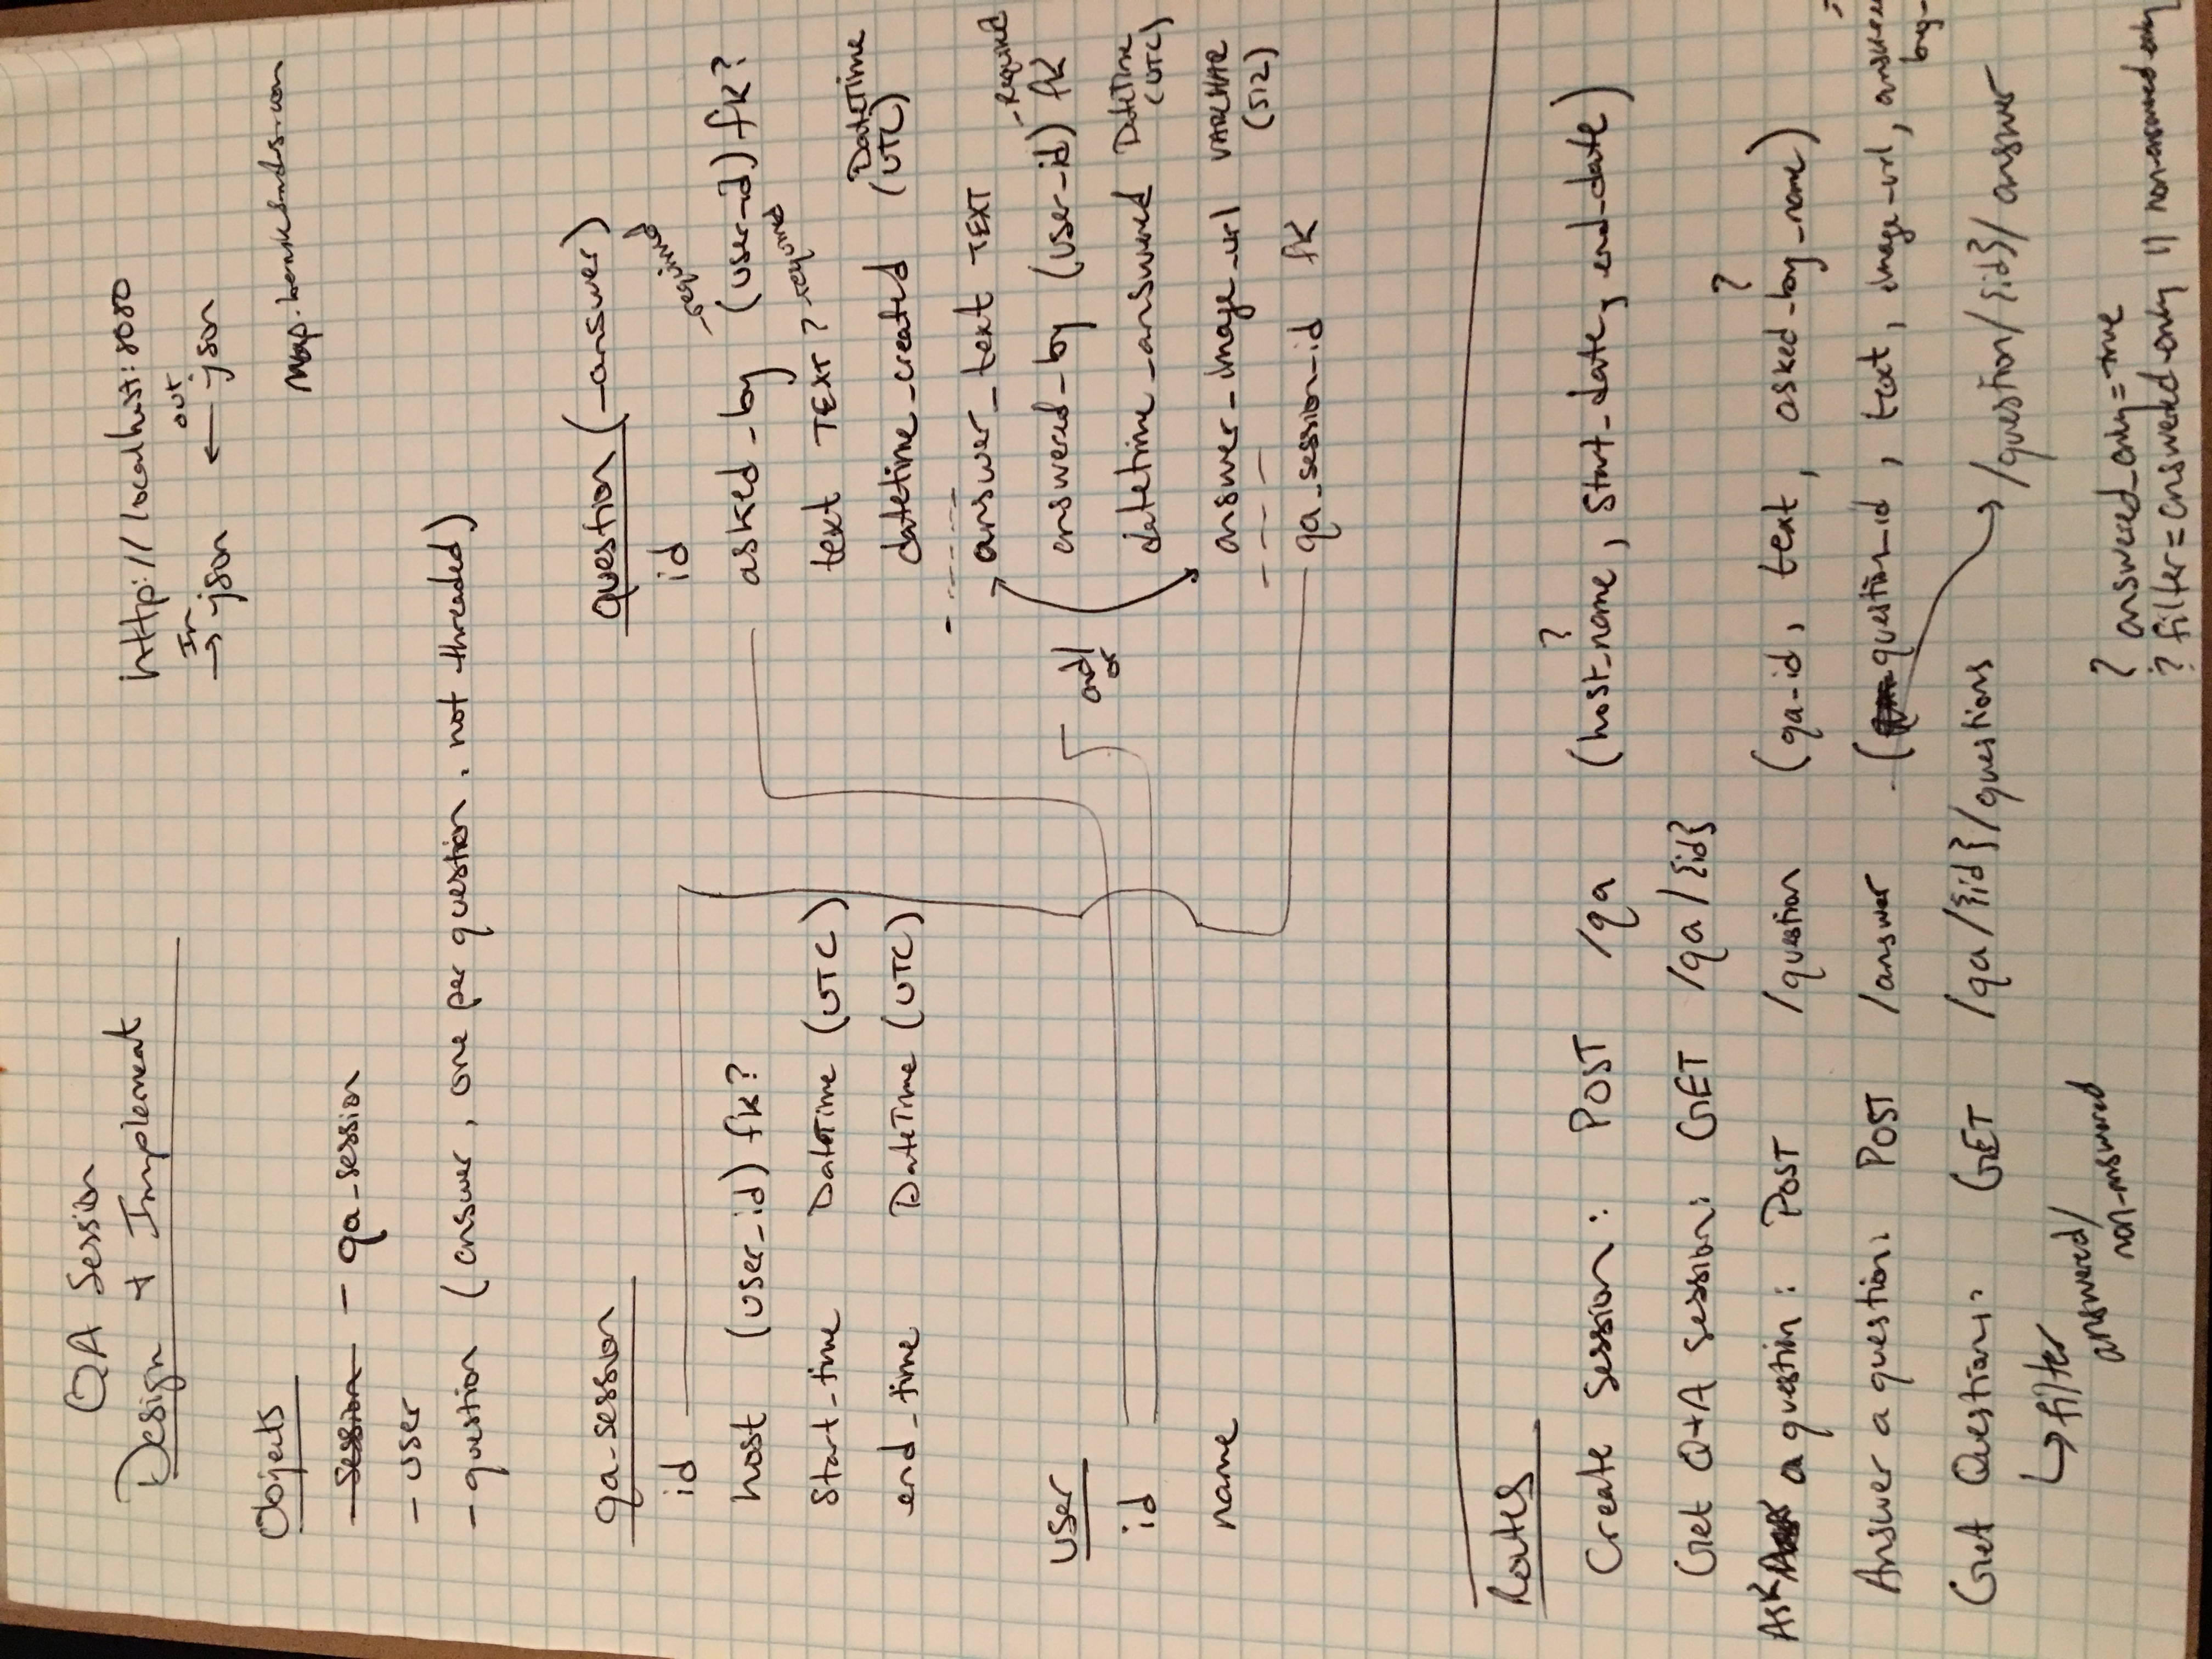 QA Session
Design + Implement
http://localhost:8080
In
→ json
out
← json
Objects
- session - qa_session
- user
- question (answer, one per question, not threaded)
qa_session
id
host (user_id) fk?
Start_time DateTime (UTC)
end_time DateTime (UTC)
user
id
name
question (_answer)
id
- required
asked_by (user_id) fk?
text TEXT? - required
datetime_created DateTime (UTC)
answer_text TEXT
- Required
answered_by (user_id) fk
and/
or
datetime_answered DateTime
(UTC)
answer_image_url VARCHAR
(512)
qa_session_id fk
Routes
?
Create Session: POST /qa (host_name, Start_date, end_date)
Get Q+A Session: GET /qa/{id}
?
Ask a question: POST /question (qa_id, text, asked_by_name)
Answer a question: POST /answer (question_id, text, image_url,
Get Questions: GET /qa/{id}/questions
/question/{id}/answer
↳ filter
answered/
non-answered
? answered_only=true
? filter=answered_only || non-answered only